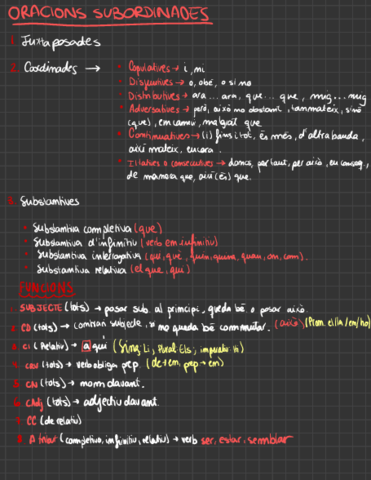 ORACIONS SUBORDINADES
1. Juxtaposades
2. Coordinades →
• Copulatives → i, ni
• Disjuntives → o, obé, o si no
• Distributives → ara... ara, que... que, mig... mig
• Adversatives → però, això no obstant, tanmateix, sinó
(que), en canvi, malgrat que
• Continuatives → (i) fins i tot, és més, d'altra banda,
així mateix, encara.
• Il·latives o consecutives → doncs, per tant, per això, en conseq,
de manera que, així (és) que.
3. Substantives
• Substantiva completiva (que)
• Substantiva d'infinitiu (verb em infinitiu)
• Substantiva interrogativa (qui, què, quin, quina, quan, on, com).
• Substantiva relativa (el que, qui)
FUNCIONS
SUBJECTE (tots) → posar sub. al principi, queda bé o posar això.
2. CD (tots) → contran subjecte. no queda bé commutar. (això) (Pron. el/la/en/ho)
3. CI (Relatiu) → a qui (Sing: Li; Plural: Els; imperatiu: hi)
4. CRV (tots) → verb oblig. prep (de → em, prep → em)
5. CN (tots) → nom davant.
6. CAdj (tots) → adjectiu davant.
7. CC (de relatiu)
8. Atribut (completiva, infinitiu, relatiu) → verb ser, estar, semblar